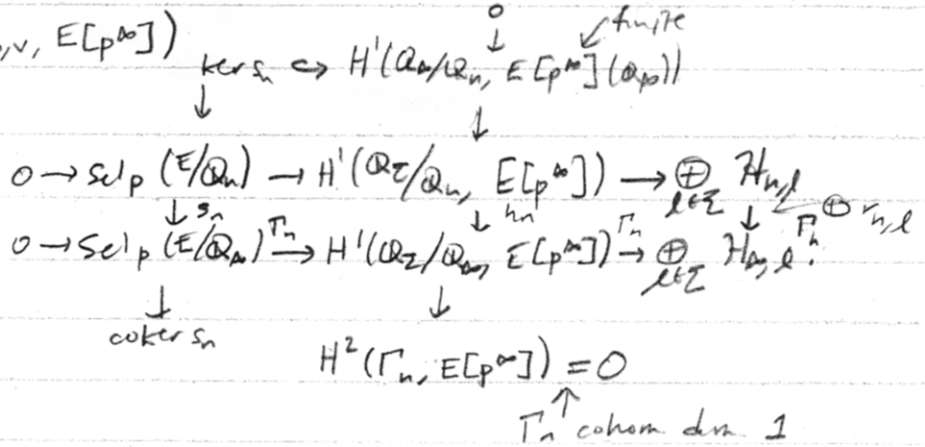 ,v, E[p^∞])
0
↓ ↙ finite
ker s_n ↪ H¹(Q_∞/Q_n, E[p^∞](Q_∞))
↓ ↓
0 → Sel_p (E/Q_n) → H¹(Q_Σ/Q_n, E[p^∞]) → ⊕_{ℓ∈Σ} H_{n,ℓ}
↓ s_n ↓ h_n ↓ ← ⊕ r_{n,ℓ}
0 → Sel_p (E/Q_∞)^{Γ_n} → H¹(Q_Σ/Q_∞, E[p^∞])^{Γ_n} → ⊕_{ℓ∈Σ} H_{∞,ℓ}^{Γ_n}.
↓ ↓
coker s_n
H²(Γ_n, E[p^∞]) = 0
↑
Γ_n cohom dim 1